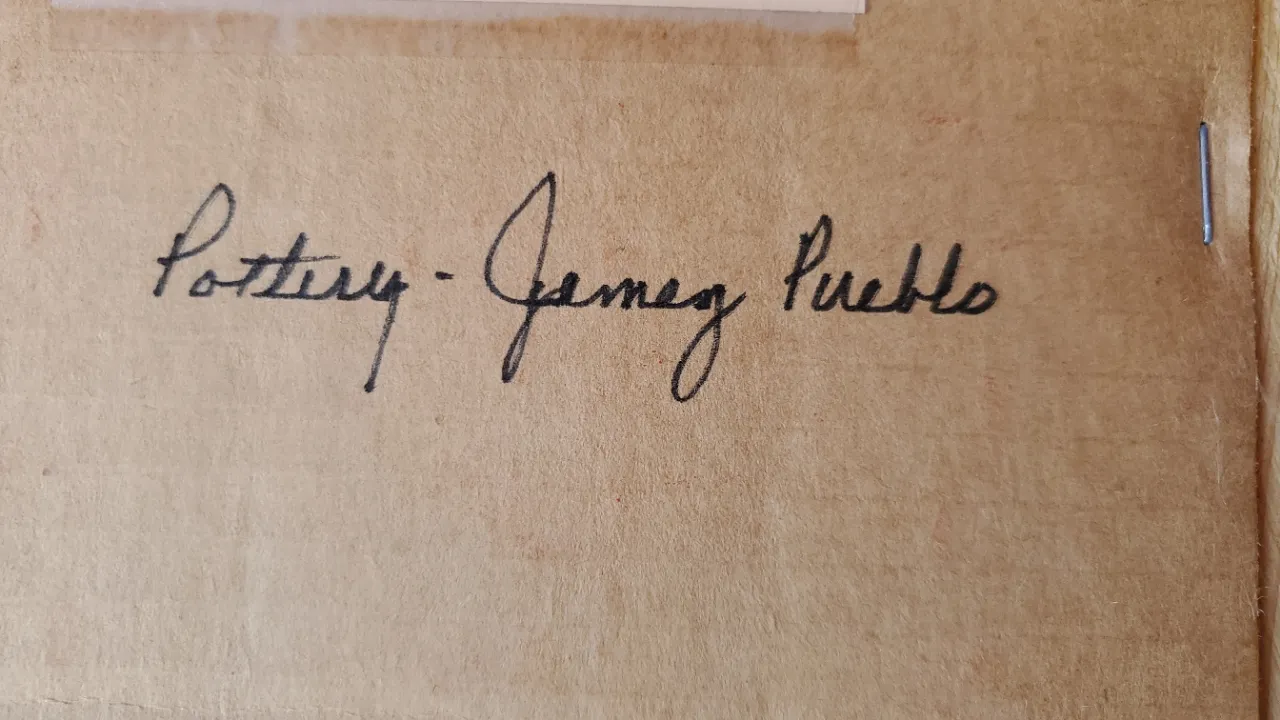 Pottery - Jemez Pueblo